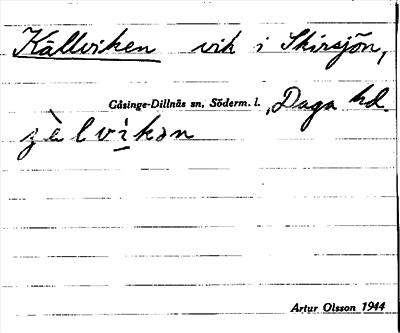 Källviken vik i Skirsjön,
Gåsinge-Dillnäs sn, Söderm. l. , Daga hd.
Artur Olsson 1944